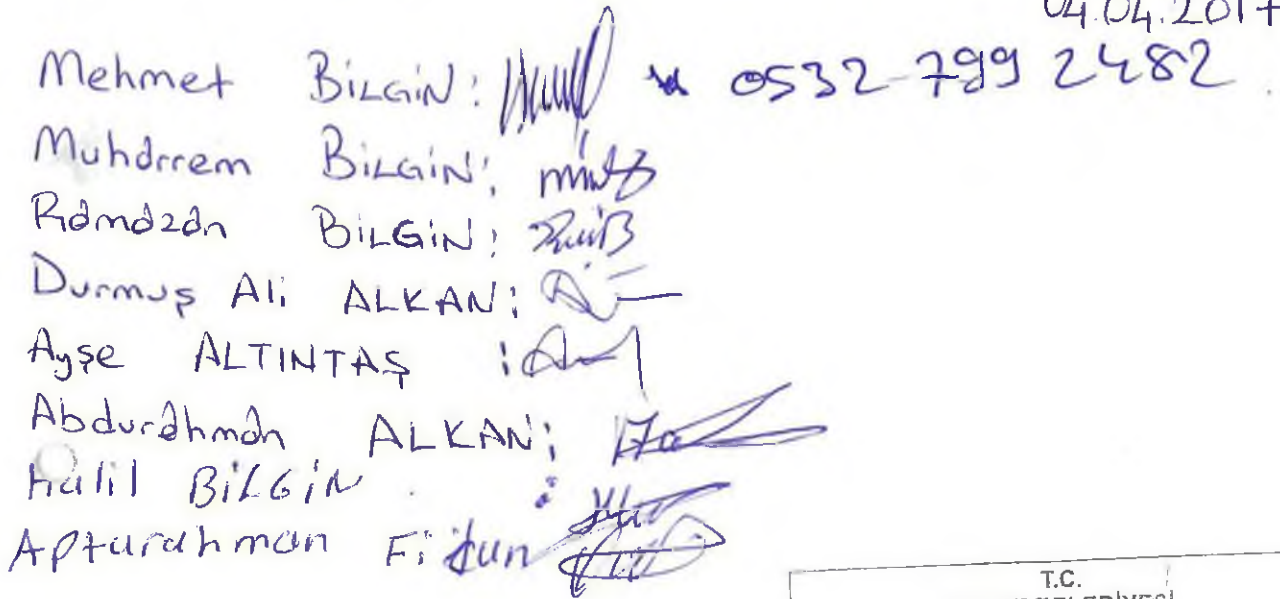 04.04.2017
Mehmet BİLGİN: 0532 799 2482
Muharrem BİLGİN:
Ramazan BİLGİN:
Durmuş Ali ALKAN:
Ayşe ALTINTAŞ :
Abdurahman ALKAN:
Halil BİLGİN :
Apturahman
T.C.